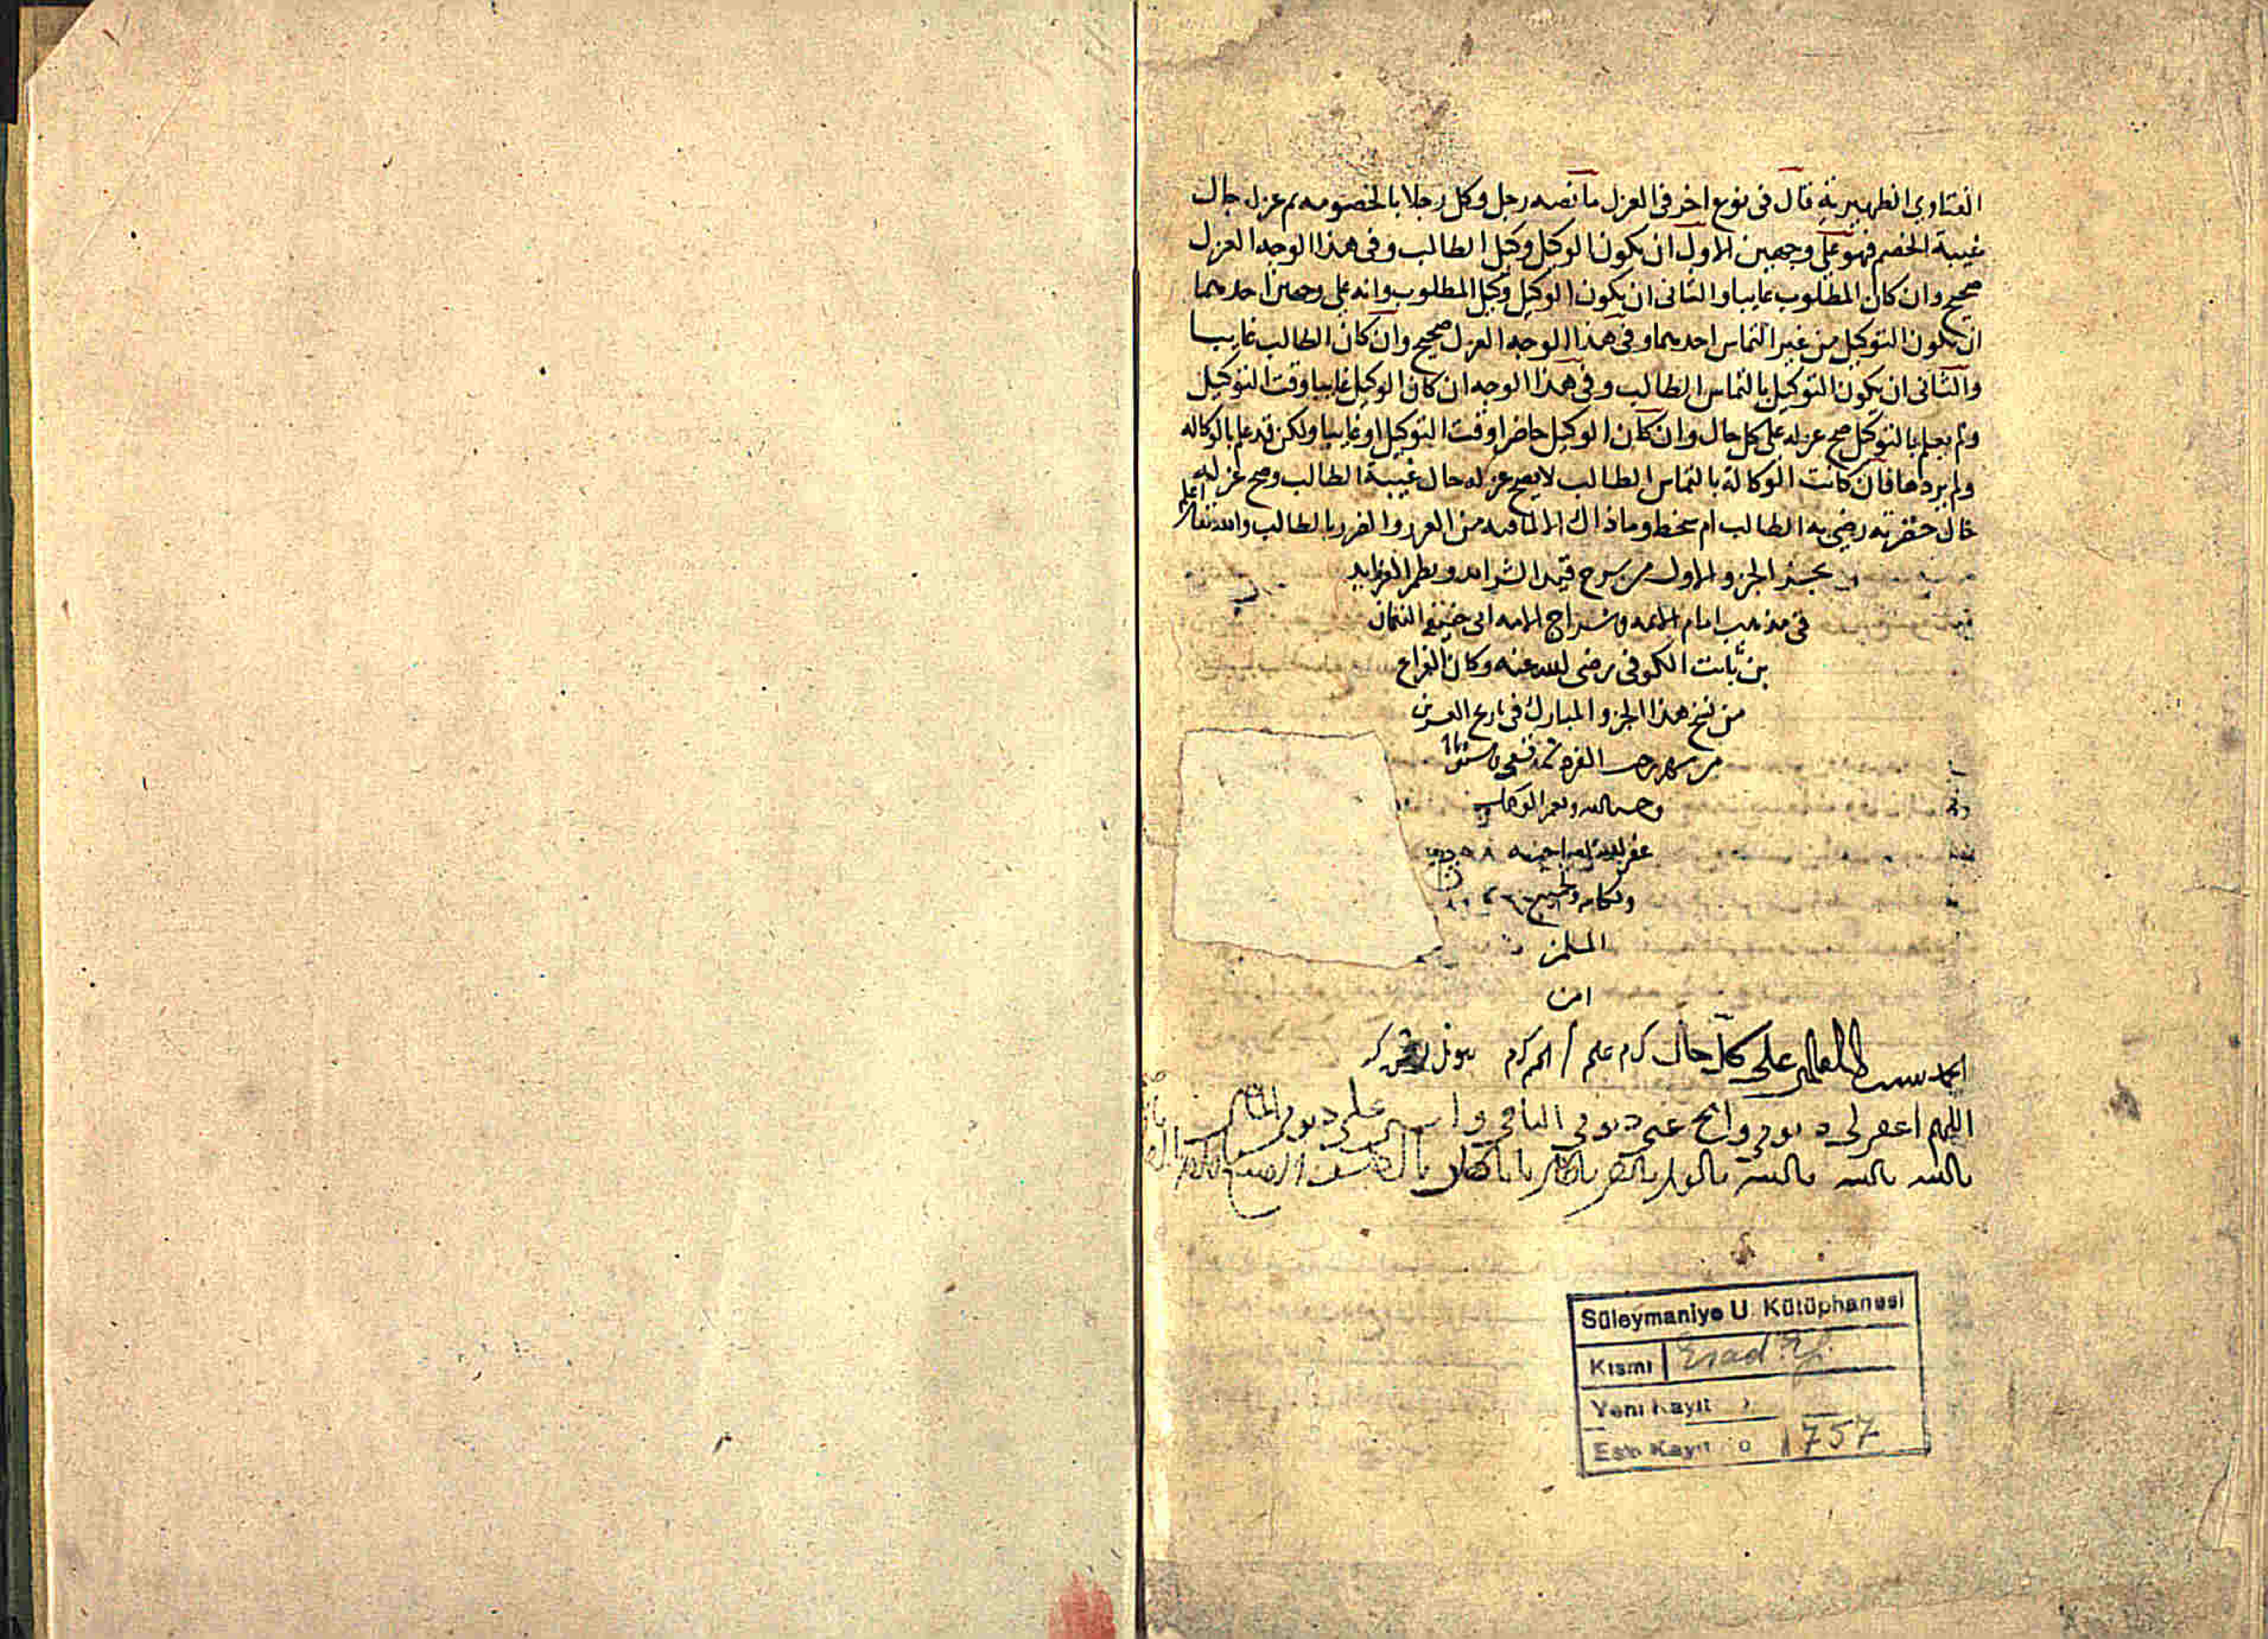 الفتاوي الظهيريه قال فى نوع اخر فى العزل ما نصه رجل وكل رجلا بالخصومه ثم عزله حال
غيبة الخصم فهو على وجهين الاول ان يكون الوكيل وكيل الطالب وفى هذا الوجه العزل
صحيح وان كان المطلوب غايبا والثانى ان يكون الوكيل وكيل المطلوب وانه على وجهين احدهما
ان يكون التوكيل من غير التماس احد وفى هذا الوجه العزل صحيح وان كان الطالب غايبا
والثانى ان يكون التوكيل بالتماس الطالب وفى هذا الوجه ان كان الوكيل غايبا وقت التوكيل
ولم يعلم بالتوكيل صح عزله على كل حال وان كان الوكيل حاضرا وقت التوكيل او غايبا ولكن قد علم بالوكاله
ولم يردها فان كانت الوكالة بالتماس الطالب لا يصح عزله حال غيبة الطالب وصح عزله
حال حضرته رضى به الطالب ام سخط وما ذاك الا لما فيه من الغرر والضرر بالطالب والله تعالى اعلم
الجزو الاول من شرح قيد الشرايد ونظم الفرايد
فى مذهب امام الايمه وسراج الامه ابى حنيفه النعمان
بن ثابت الكوفى رضى الله عنه وكان الفراغ
من نسخ هذا الجزو المبارك فى تاريخ العشرين
من شهر رجب الفرد
وحسبنا الله ونعم الوكيل
غفر الله
ولكاتبه ولجميع
المسلمين
امين
الحمد لله رب العالمين على كل حال
اللهم اغفر لى ذنوبى وامح عنى ذنوبى
يا الله يا الله يا الله
Süleymaniye U. Kütüphanesi
Kısmı Esad Ef.
Yeni Kayıt
Eski Kayıt o 1757